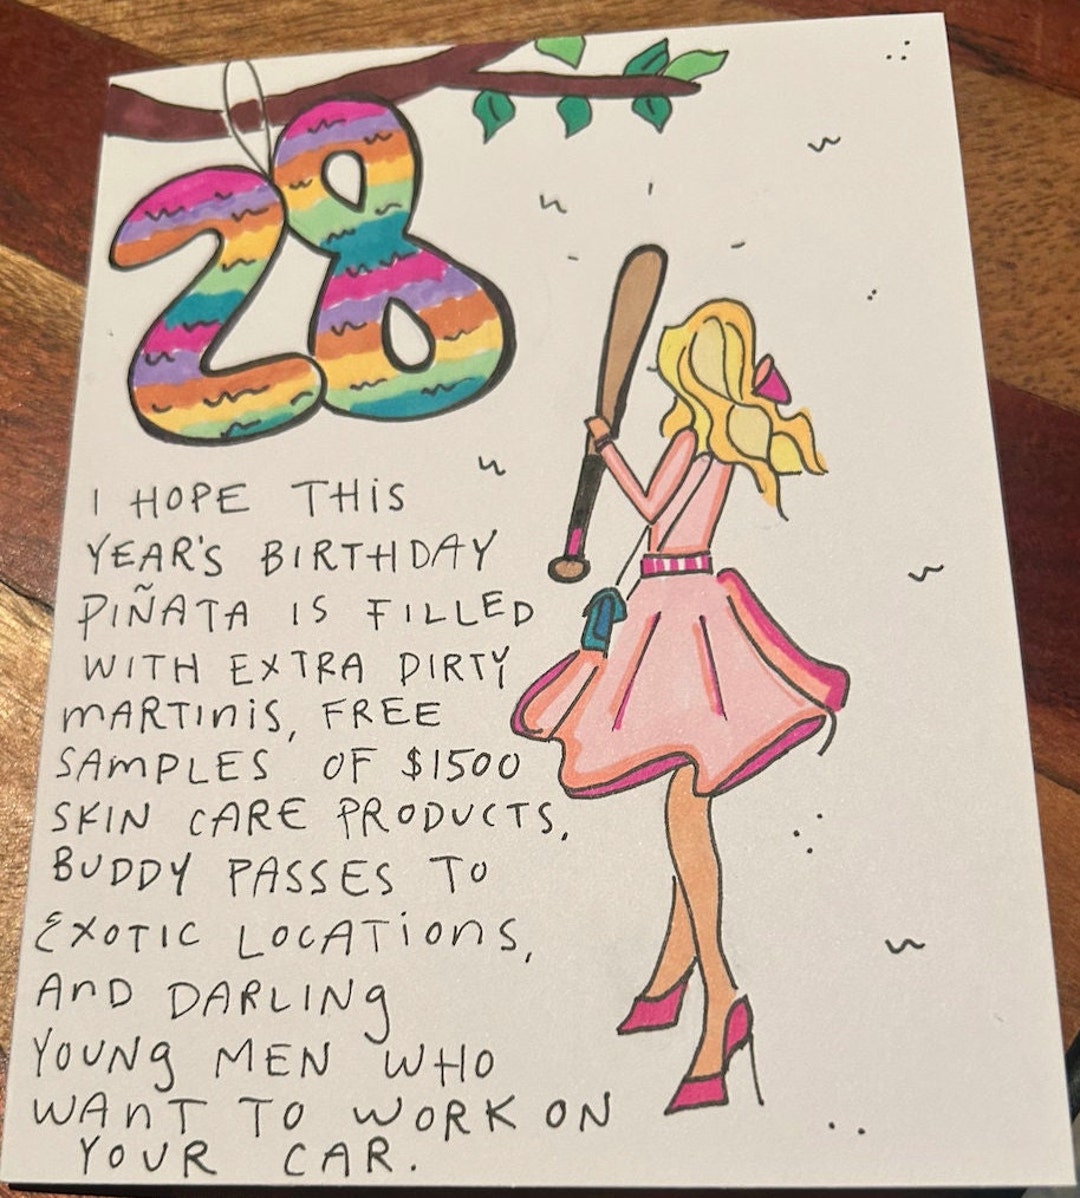 28
I HOPE THIS
YEAR'S BIRTHDAY
PIÑATA IS FILLED
WITH EXTRA DIRTY
MARTINIS, FREE
SAMPLES OF $1500
SKIN CARE PRODUCTS,
BUDDY PASSES TO
EXOTIC LOCATIONS,
AND DARLING
YOUNG MEN WHO
WANT TO WORK ON
YOUR CAR.